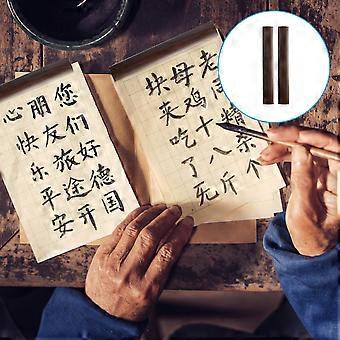 老
精
个
母鸡十八斤
块夹吃了无
您们好德国
朋友旅途开
心快乐平安